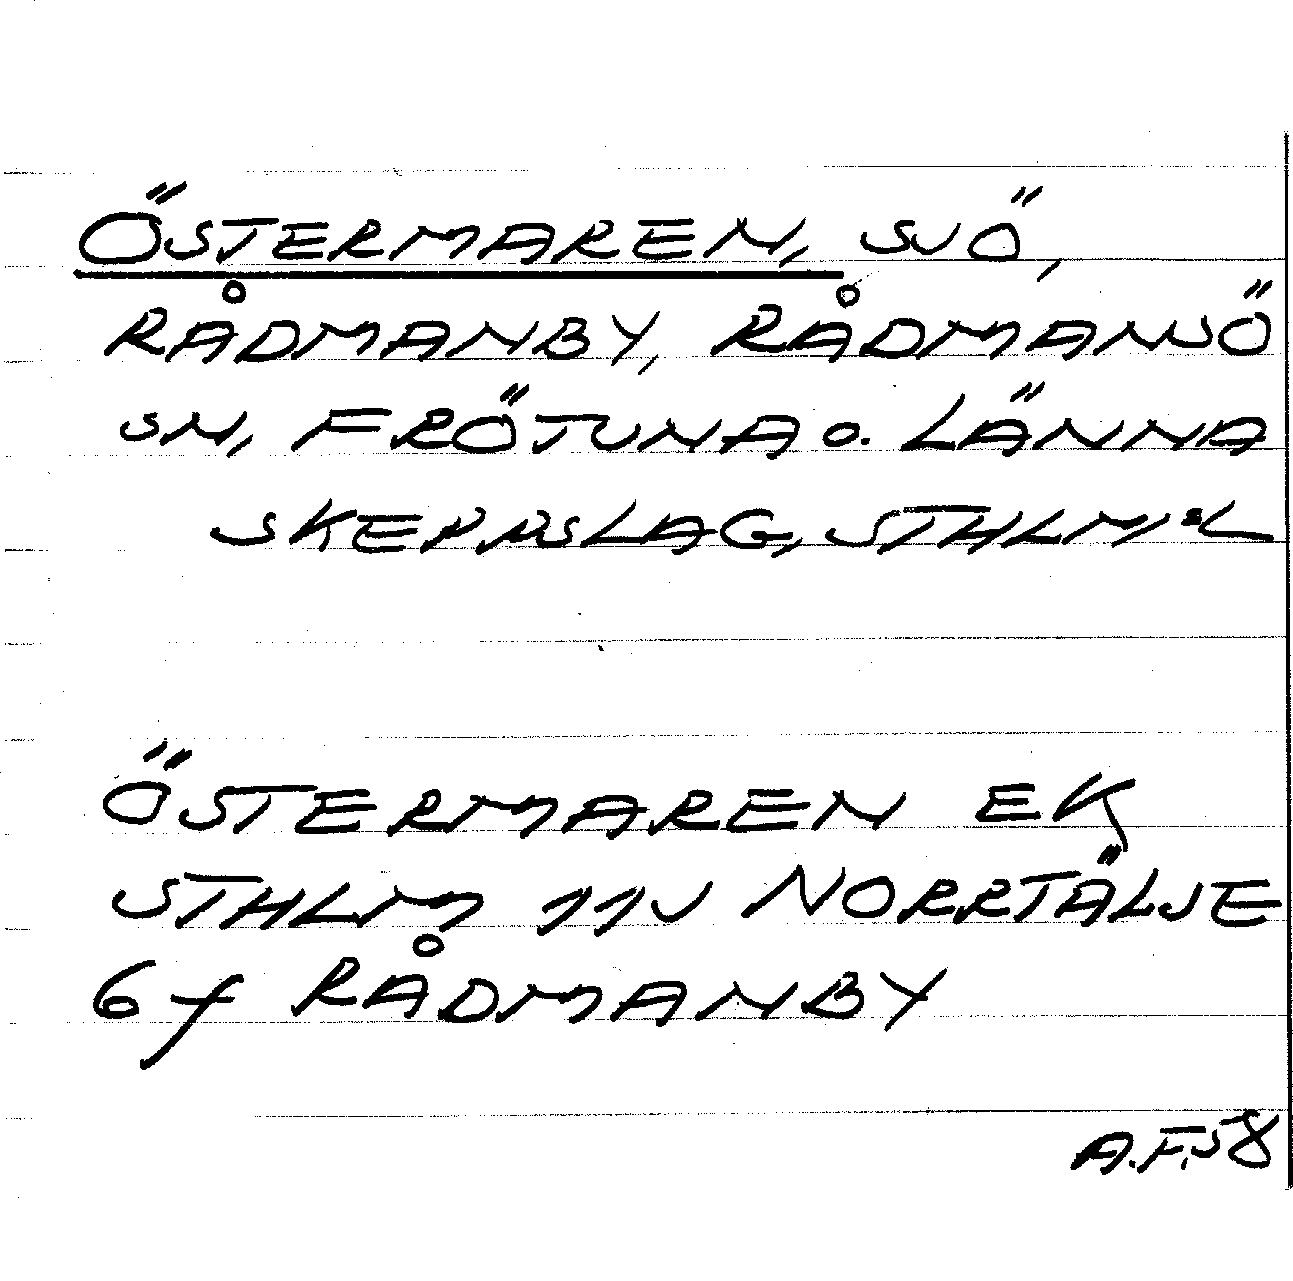 ÖSTERMAREN, SJÖ,
RÅDMANBY, RÅDMANSÖ
SN, FRÖTUNA O. LÄNNA
SKEPPSLAG, STHLMSL
ÖSTERMAREN EK
STHLM 11J NORRTÄLJE
6f RÅDMANBY
A.F.58